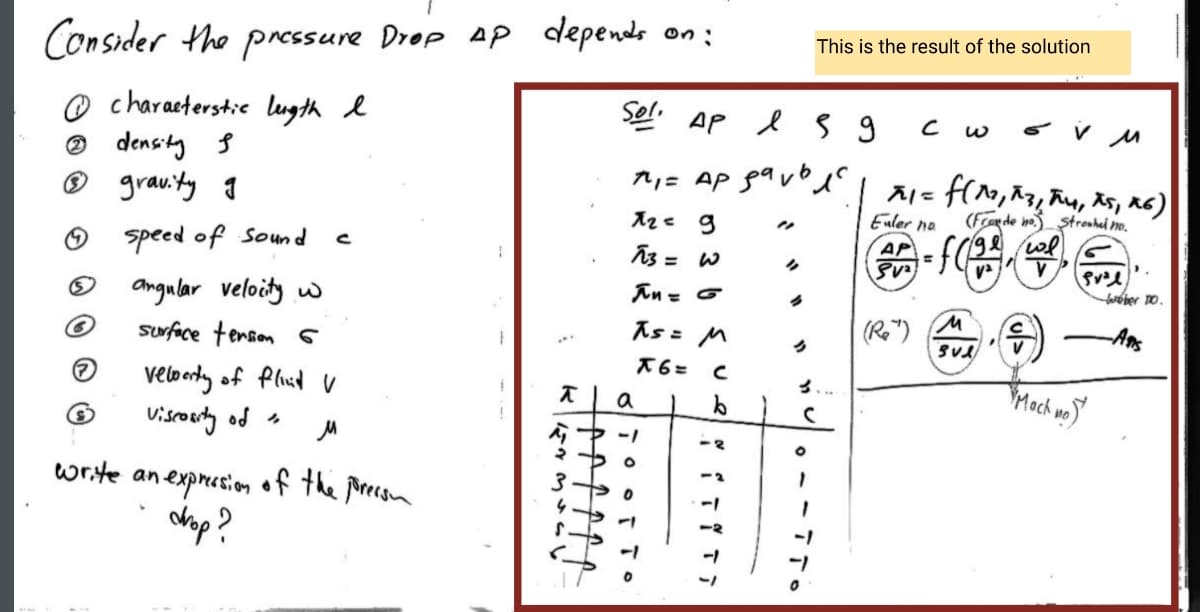 Consider the pressure Drop ΔP depends on :
① characterstic length l
② density ρ
③ gravity g
④ speed of sound c
⑤ angular velocity ω
⑥ surface tension σ
⑦ velocity of fluid v
⑧ viscosity of " μ
write an expression of the
drop ?
This is the result of the solution
Sol. ΔP l ρ g c ω σ v μ
π1 = ΔP ρ^a v^b l^c
π2 = g "
π3 = ω "
π4 = σ "
π5 = μ "
π6 = c "
π | a | b | c
π1 → -1 -2 0
2 → 0 -2 1
3 → 0 -1 1
4 → -1 -2 -1
5 → -1 -1 -1
6 → 0 -1 0
π1 = f(π2, π3, π4, π5, π6)
Euler no (Froude no.) Strouhal no.
(ΔP/ρv²) = f((gl/v²), (ωl/v), (σ/ρv²l),
weber no.
(Re⁻¹) (μ/ρvl), (c/v)) — Ans
(Mach no)⁻¹